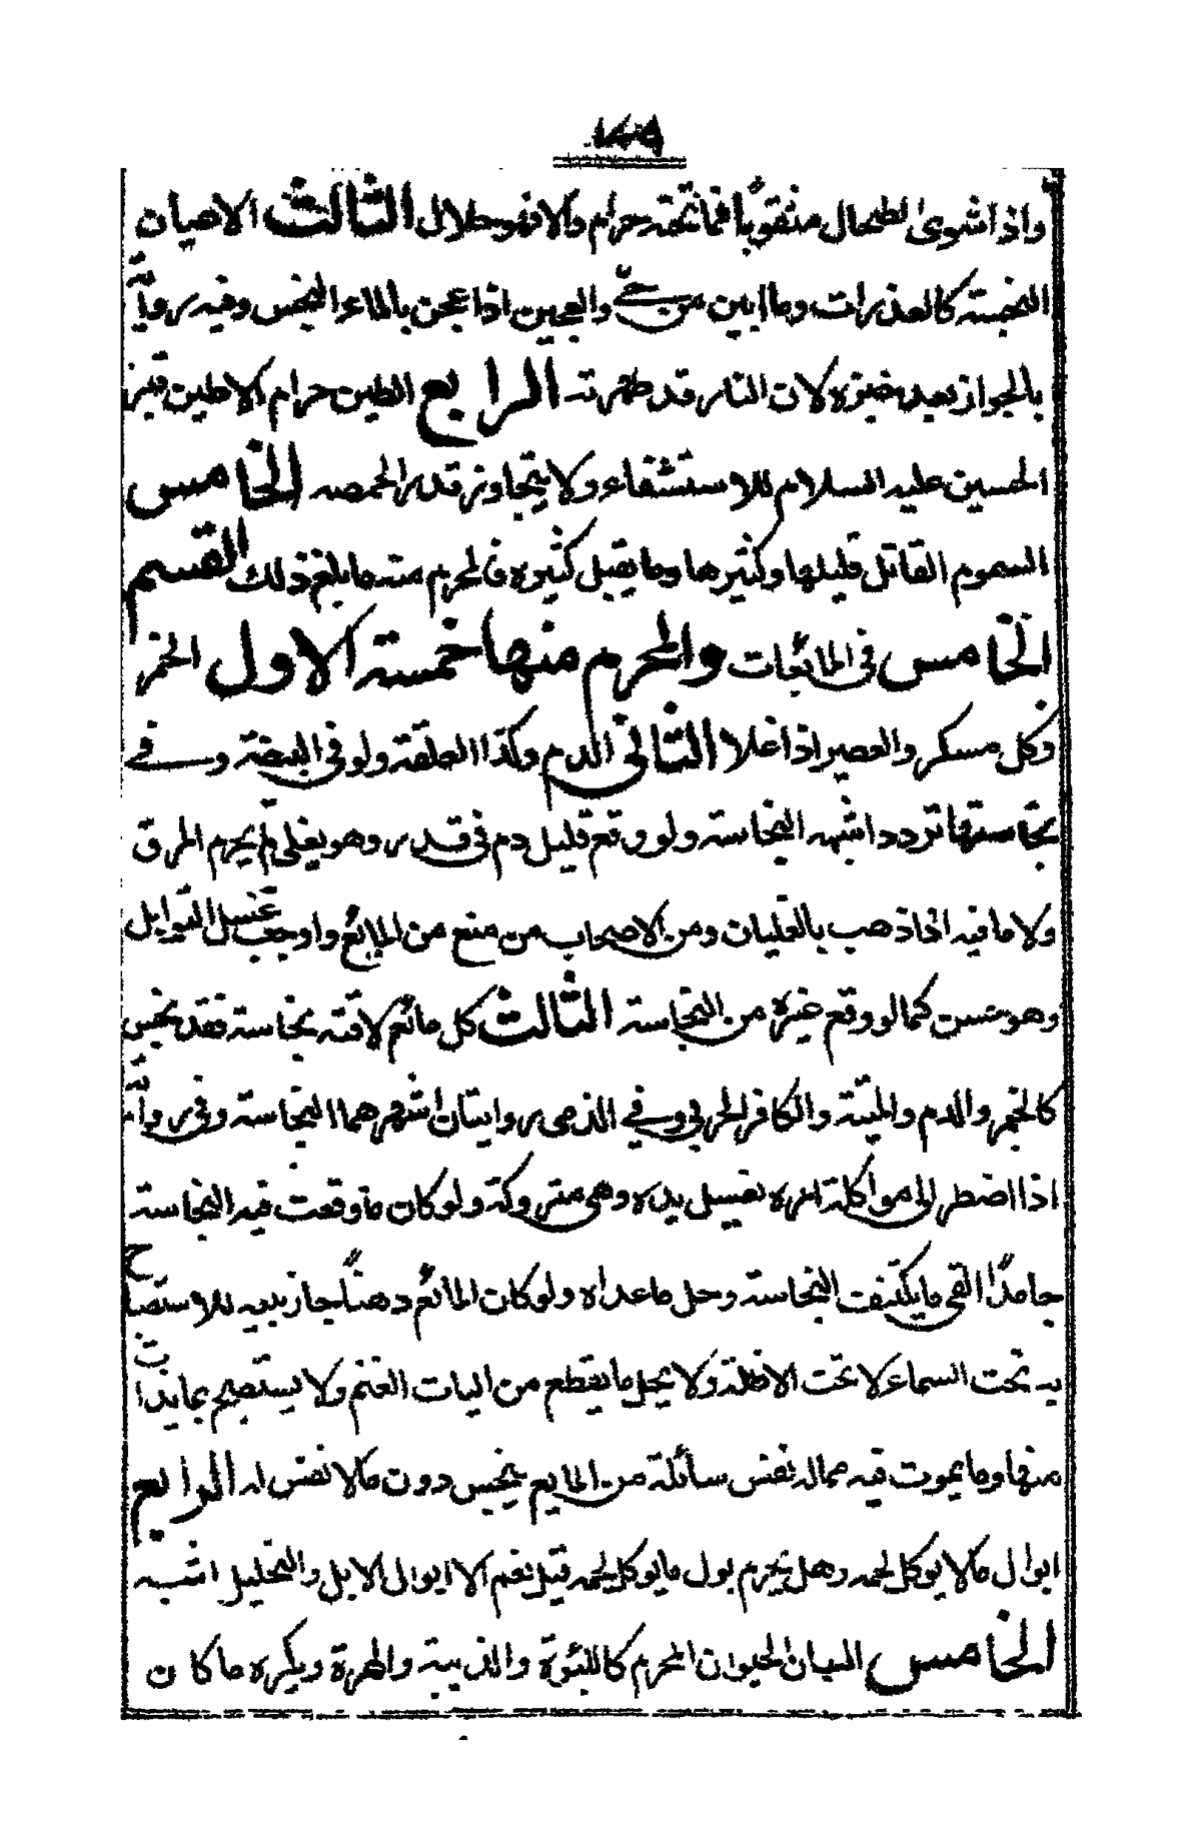 واذا شوى الطحال مثقوبًا فما تحته حرام والا فهو حلال الثالث الاعيان
النجسة كالعذرات وما ابين من حىّ والعجين اذا عجن بالماء النجس وفيه رواية
بالجواز بعد خبزه لان النار قد طهرته الرابع الطين حرام الا طين قبر
الحسين عليه السلام للاستشفاء ولا يتجاوز قدر الحمصه الخامس
السموم القاتل قليلها وكثيرها وما يقتل كثيره فالمحرم منه ما بلغ ذلك القسم
الخامس في المائعات والمحرم منها خمسة الاول الخمر
وكل مسكر والعصير اذا غلا الثانى الدم وكذا العلقة ولو فى البيضة وفي
نجاستها تردد اشبهه النجاسة ولو وقع قليل دم فى قدر وهو يغلى لم يحرم المرق
ولا ما فيه اذا ذهب بالغليان ومن الاصحاب من منع من المائع واوجب غسل التوابل
وهو حسن كما لو وقع غيره من النجاسة الثالث كل مائع لاقته نجاسة فقد نجس
كالخمر والدم والميتة والكافر الحربى وفي الذمى روايتان اشهرهما النجاسة وفى رواية
اذا اضطر الى مواكلة امره بغسل يده وهى متروكة ولو كان ما وقعت فيه النجاسة
جامدًا القى ما يكتنف النجاسة وحل ما عداه ولو كان المائع دهنًا جاز بيعه للاستصباح
به تحت السماء لا تحت الاظلة ولا يحل ما يقطع من اليات الغنم ولا يستصبح بما يذاب
منها وما يموت فيه مما له نفس سائلة من المايع ينجس دون ما لا نفس له الرابع
ابوال ما لا يوكل لحمه وهل يحرم بول ما يوكل لحمه قيل نعم الا ابوال الابل والتحليل اشبه
الخامس البان الحيوان المحرم كاللبوة والذيبة والهرة ويكره ما كان